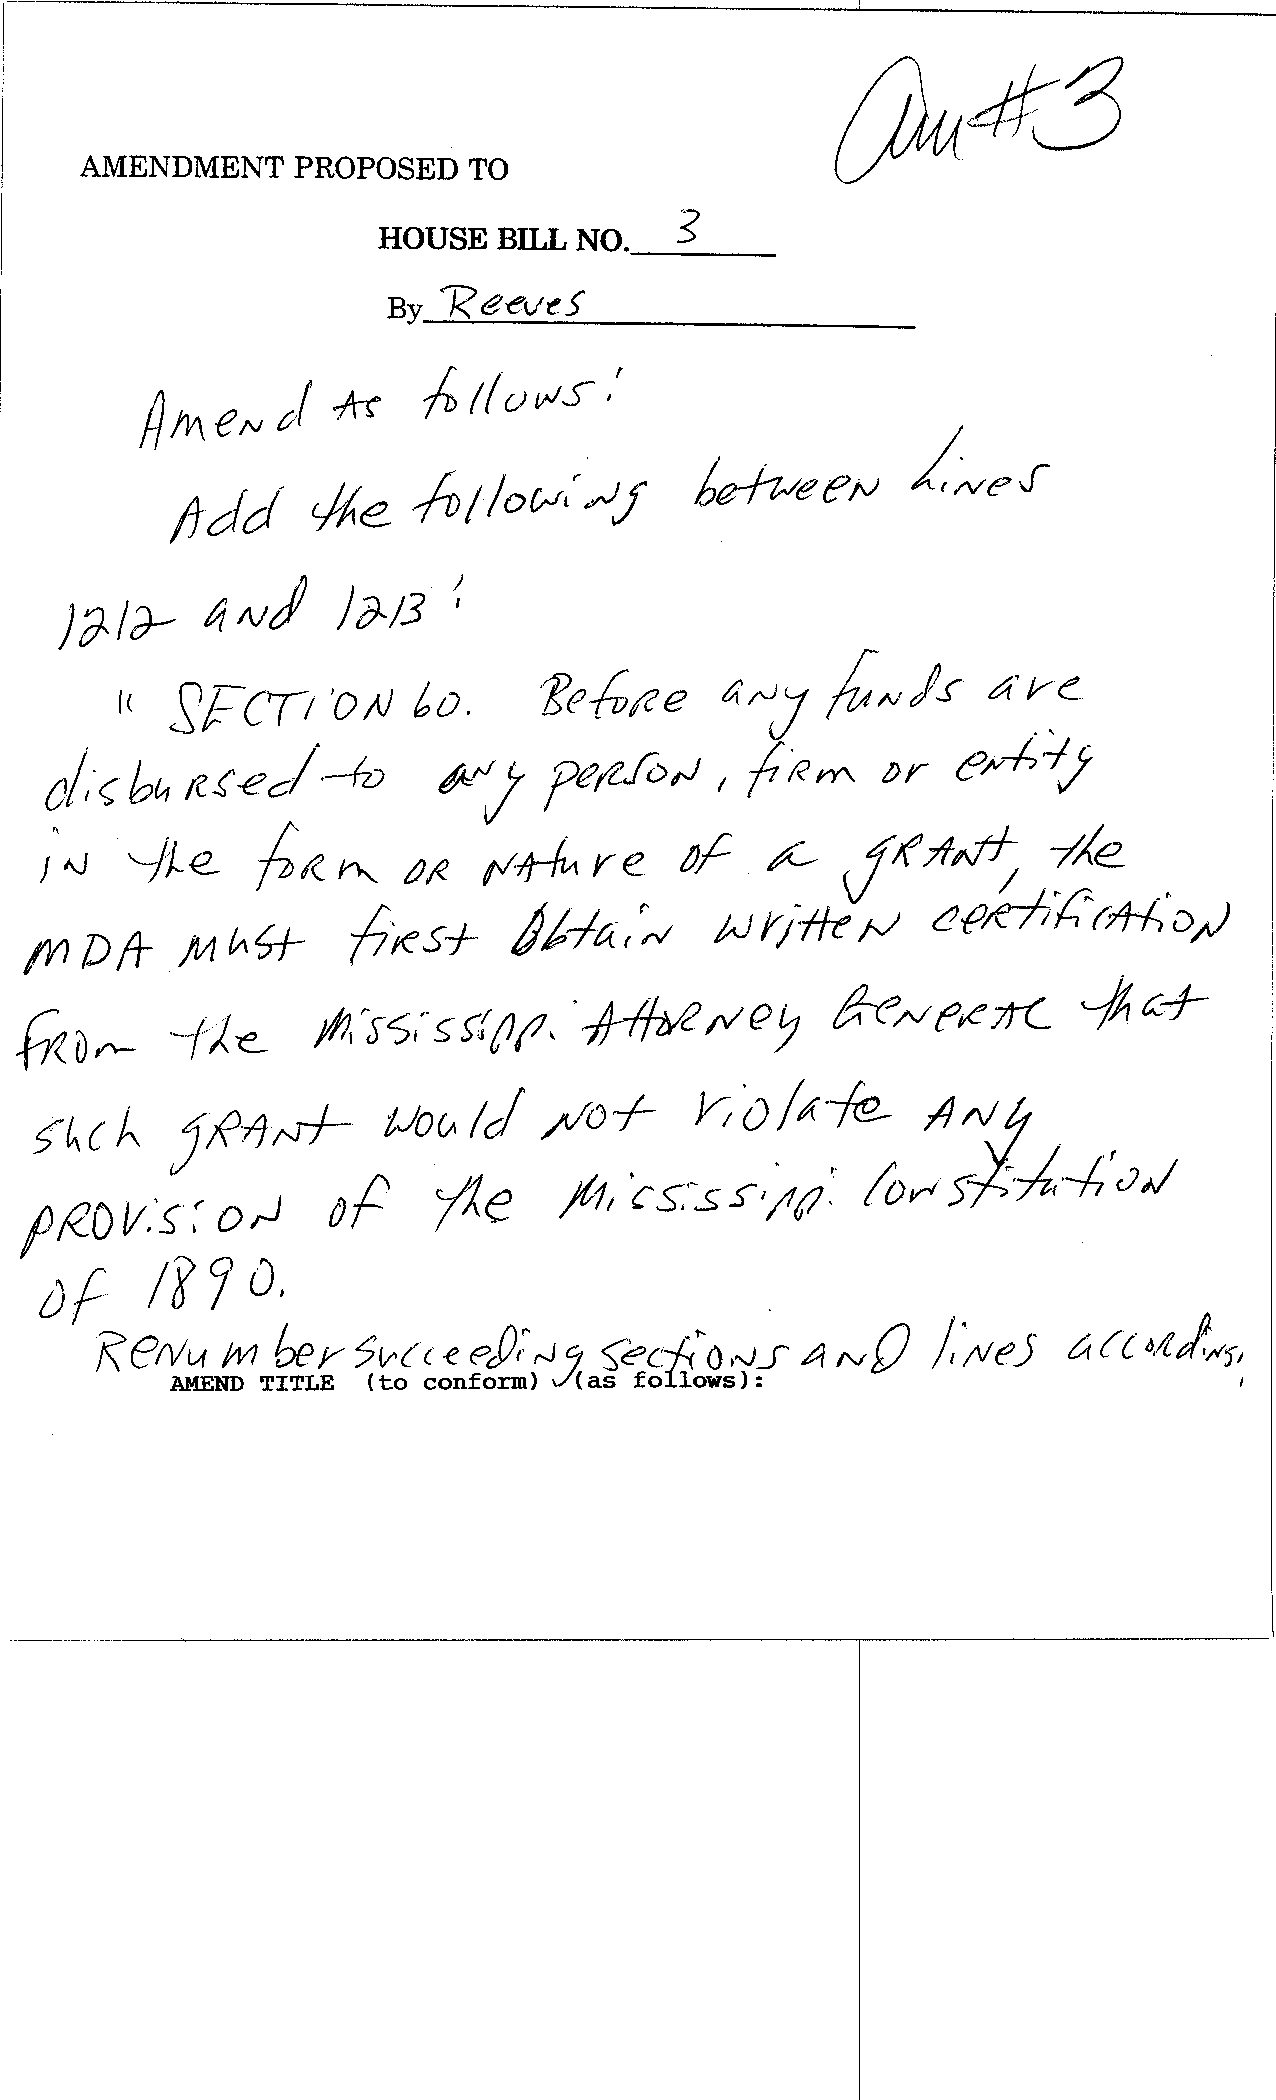 Am #3
AMENDMENT PROPOSED TO
HOUSE BILL NO. 3
By Reeves
Amend As follows:
Add the following between Lines
1212 and 1213:
" SECTION 60. Before any funds are
disbursed to any person, firm or entity
in the form or nature of a grant, the
MDA must first obtain written certification
from the Mississippi Attorney General that
such grant would not violate any
provision of the Mississippi Constitution
of 1890.
Renumber succeeding sections and lines according.
AMEND TITLE (to conform) ✓(as follows):